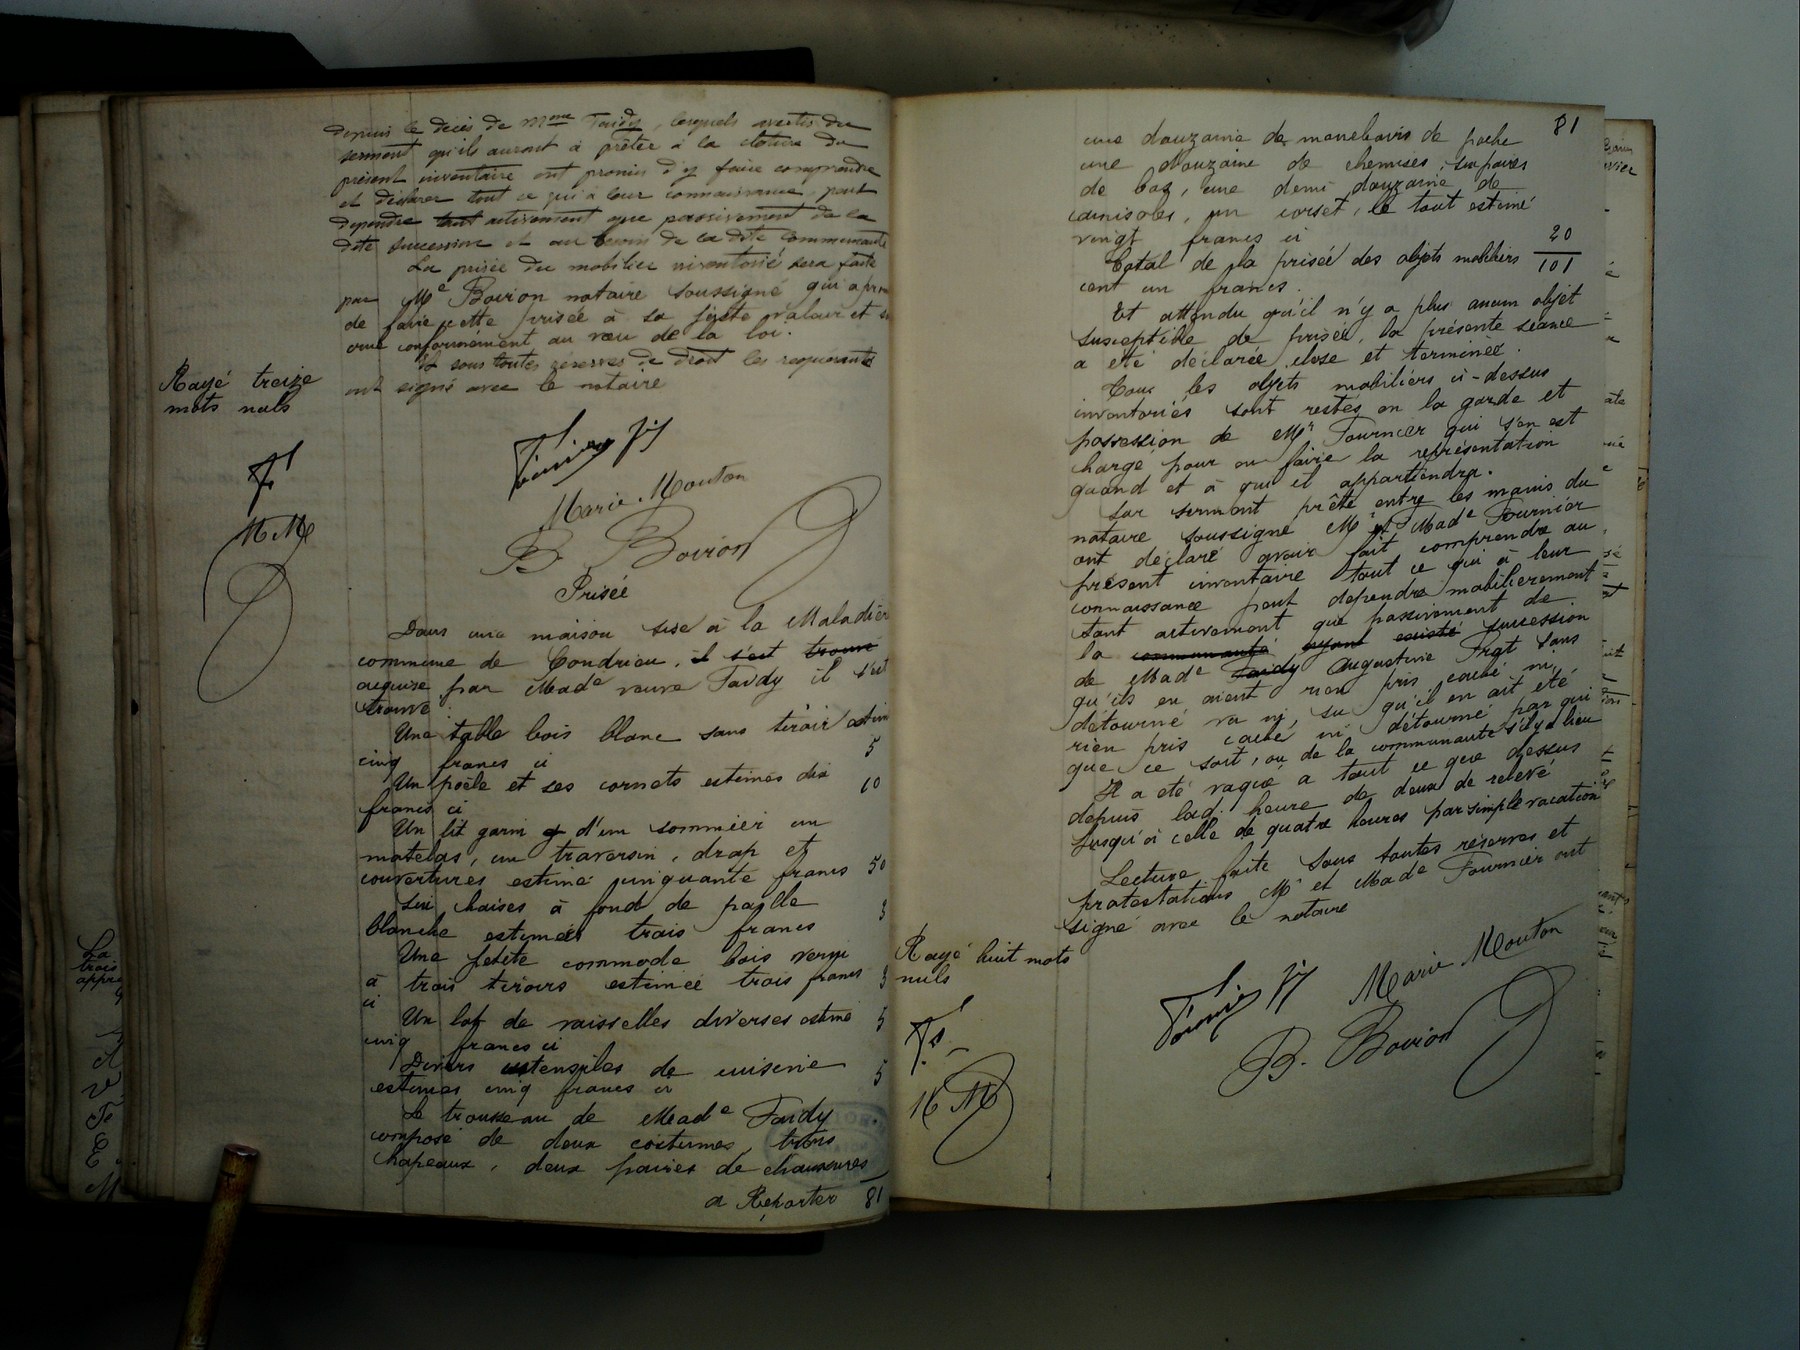 depuis le décès de Mme Tardy, lesquels avertis du
serment qu'ils auront à prêter à la clôture du
présent inventaire ont promis d'y faire comprendre
et déclarer tout ce qui à leur connaissance peut
dependre tant activement que passivement de la
dite succession et au besoin de la dite communauté
La prisée du mobilier inventorié sera faite
par Me Boiron notaire soussigné qui a prom
de faire cette prisée à sa juste valeur et
crue conformément au vœu de la loi.
Et sous toutes réserves de droit les requérants
ont signé avec le notaire
Rayé treize
mots nuls
Marie Mouton
B Boiron
M M
Prisée
Dans une maison sise à la Maladière
commune de Condrieu, il s'est trouvé
acquise par Made veuve Tardy il s'est
trouvé.
Une table bois blanc sans tiroir estim
cinq francs ci 5
Un poêle et ses cornets estimés dix
francs ci 10
Un lit garni d'un sommier un
matelas, un traversin, drap et
couvertures estimé cinquante francs 50
Six chaises à fond de paille
blanche estimées trois francs 3
Une petite commode bois verni
à trois tiroirs estimée trois francs 3
ci
Un lot de vaisselles diverses estimé
cinq francs ci 5
Divers ustensiles de cuisine
estimés cinq francs ci 5
Le trousseau de Made Tardy
composé de deux costumes, trois
chapeaux, deux paires de chaussures
a Reporter 81
81
une douzaine de mouchoirs de poche
une douzaine de chemises, six paires
de bas, une demi douzaine de
camisoles, un corset, le tout estimé
vingt francs ci 20
Total de la prisée des objets mobiliers 101
cent un francs.
Et attendu qu'il n'y a plus aucun objet
susceptible de prisée, la présente séance
a été déclarée close et terminée.
Tous les objets mobiliers ci-dessus
inventoriés sont restés en la garde et
possession de Mr Fournier qui s'en est
chargé pour en faire la représentation
quand et à qui il appartiendra.
Sur serment prêté entre les mains du
notaire soussigné Mr et Made Fournier
ont déclaré avoir fait comprendre au
présent inventaire tout ce qui à leur
connaissance peut dependre mobilierement
tant activement que passivement de
la communauté ayant existé succession
de Made Tardy Augustine Prgt sans
qu'ils en aient rien pris caché ni
détourné vu ni, su qu'il en ait été
rien pris caché ni détourné par qui
que ce soit, ou de la communauté s'il y a lieu
Il a été vaqué à tout ce que dessus
depuis lad. heure de deux de relevé
jusqu'à celle de quatre heures par simple vacation
Lecture faite sous toutes réserves et
protestations Mr et Made Fournier ont
signé avec le notaire
Rayé huit mots
nuls
Marie Mouton
B. Boiron
M M